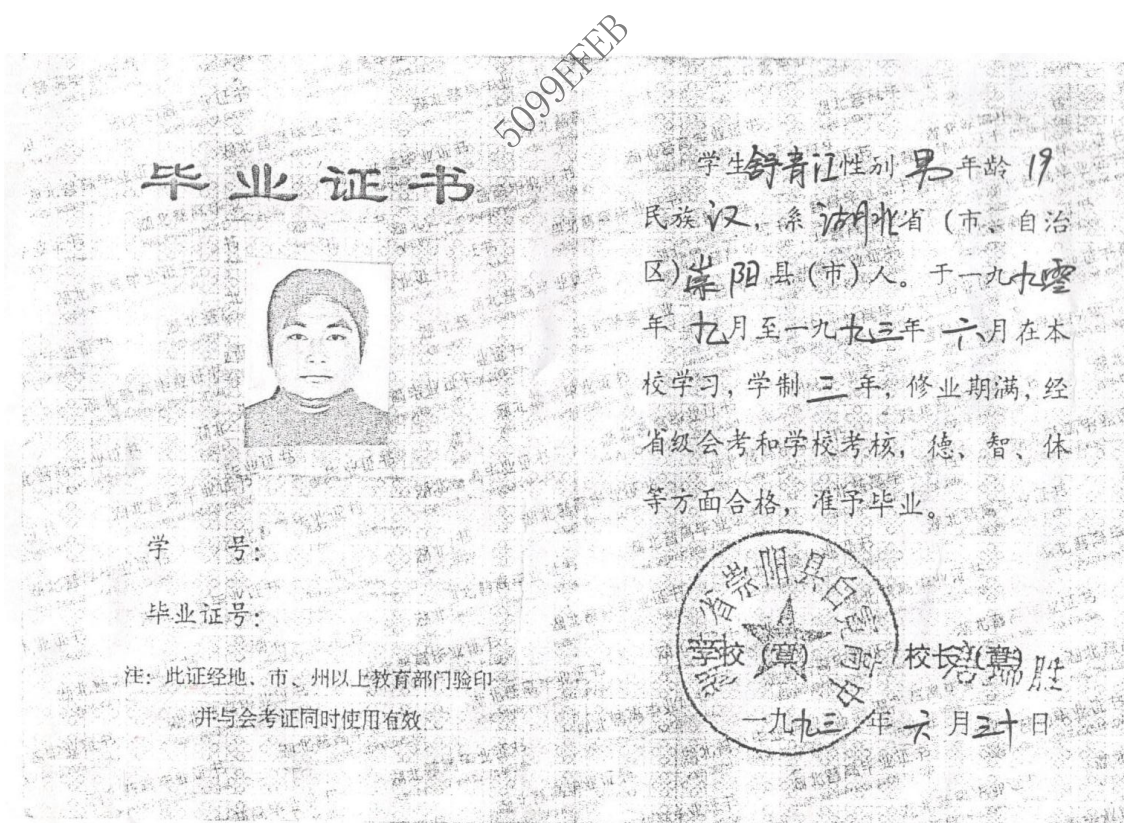 5099EFEB
毕业证书
学号：
毕业证号：
注：此证经地、市、州以上教育部门验印
并与会考证同时使用有效
学生舒青江性别 男 年龄 19
民族 汉，系 湖北省（市、自治
区）崇阳县（市）人。于一九九零
年 九月至一九九三年 六月在本
校学习，学制 三 年，修业期满，经
省级会考和学校考核，德、智、体
等方面合格，准予毕业。
省崇阳县白霓高中
学校（章） 校长（章）
一九九三 年 六 月三十日